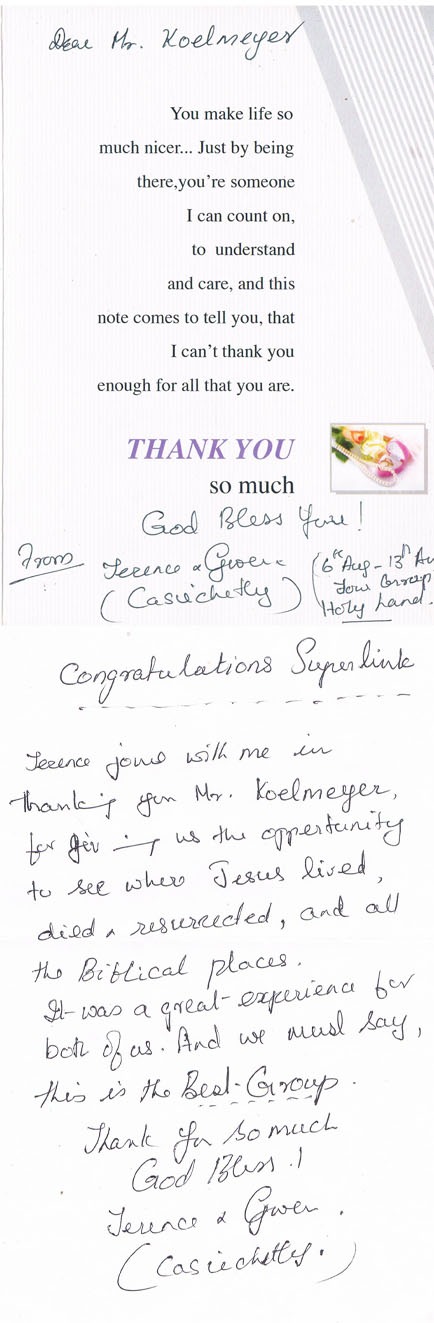 Dear Mr. Koelmeyer
You make life so
much nicer... Just by being
there,you're someone
I can count on,
to understand
and care, and this
note comes to tell you, that
I can't thank you
enough for all that you are.
THANK YOU
so much
God Bless You!
From Terence & Gwen
(Casiechetty)
(6th Aug - 13th Au
Tour Group
Holy Land.
Congratulations Superlink
Terence joins with me in
thanking you Mr. Koelmeyer,
for giving us the oppertunity
to see where Jesus lived,
died & resurrected, and all
the Biblical places.
It was a great experience for
both of us. And we must say,
this is the Best Group.
Thank you so much
God Bless!
Terence & Gwen.
(Casiechetty.)